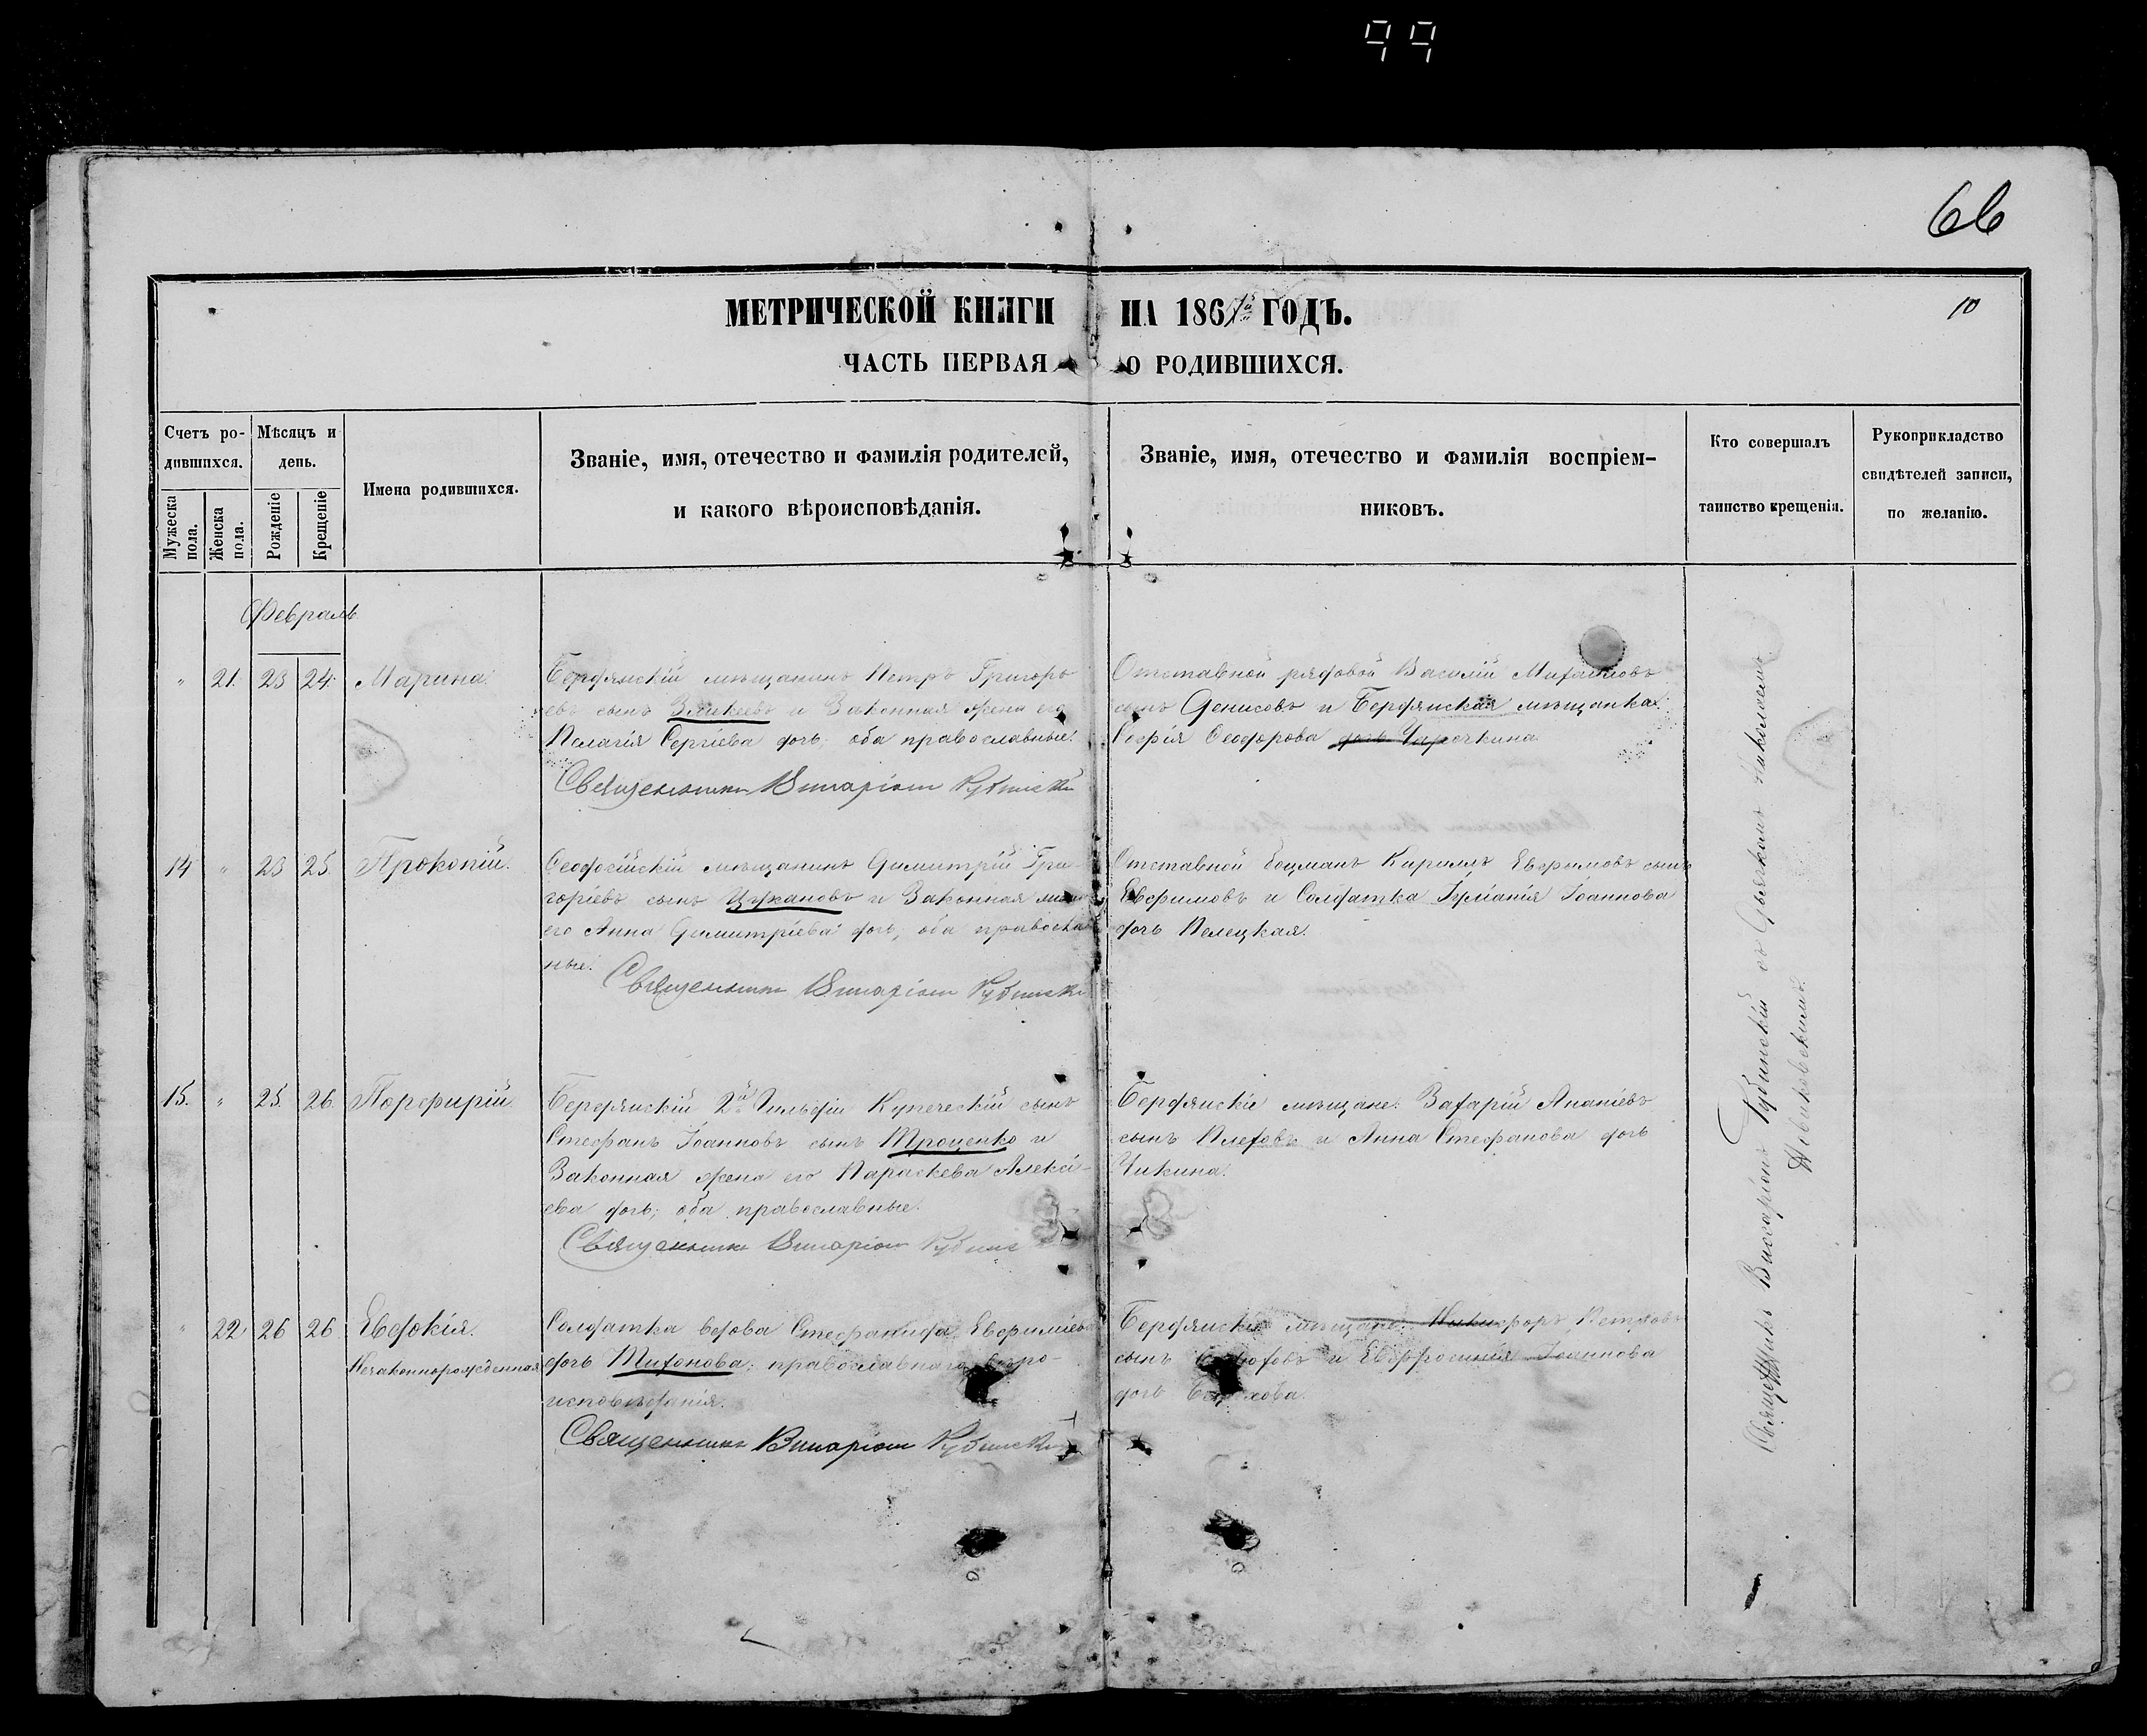 99
66
МЕТРИЧЕСКОЙ КНИГИ НА 1861й ГОДЪ.
10
ЧАСТЬ ПЕРВАЯ О РОДИВШИХСЯ.
Счетъ ро-
дившихся.
Мужеска
пола.
Женска
пола.
Мѣсяцъ и
день.
Рожденіе
Крещеніе
Имена родившихся.
Званіе, имя, отечество и фамилія родителей,
и какого вѣроисповѣданія.
Званіе, имя, отечество и фамилія воспріем-
никовъ.
Кто совершалъ
таинство крещенія.
Рукоприкладство
свидѣтелей записи,
по желанію.
Февраль
„ 21. 23 24. Марина.
Бердянскій мѣщанинъ Петръ Григорь
евъ сынъ и Законная жена его
Пелагія Сергіева дочь, оба православные.
Священникъ Виссаріонъ Рубинскій
Отставной рядовой Василій
сынъ Денисовъ и Бердянская мѣщанка
Софія Ѳеодорова дочь
14 „ 23 25 Прокопій.
Ѳеодосійскій мѣщанинъ Димитрій Гри-
горіевъ сынъ Цукановъ и Законная жена
его Анна Димитріева дочь, оба православ
ные.
Священникъ Виссаріонъ Рубинскій
Отставной боцманъ Кириллъ Евфимовъ сынъ
Евфимовъ и Солдатка Іуліанія Іоаннова
дочь Пелецкая.
15. „ 25. 26. Порфирій.
Бердянскій 2й Гильдіи Купеческій сынъ
Стефанъ Іоанновъ сынъ Троценко и
Законная жена его Параскева Алексі-
ева дочь; оба православные.
Священникъ Виссаріонъ
Бердянскіе мѣщане: Захарій Ананіевъ
сынъ и Анна Стефанова дочь
Чикина.
„ 22 26 26 Евдокія.
Незаконнорожденная
Солдатка вдова Стефанида Евфиміева
дочь Тихонова; православнаго вѣро-
исповѣданія.
Священникъ Виссаріонъ Рубинскій
Бердянскіе мѣщане: Никифоръ Петровъ
сынъ и Евфросинія Іоаннова
дочь
Священникъ Виссаріонъ Рубинскій съ Дьячкомъ Николаемъ